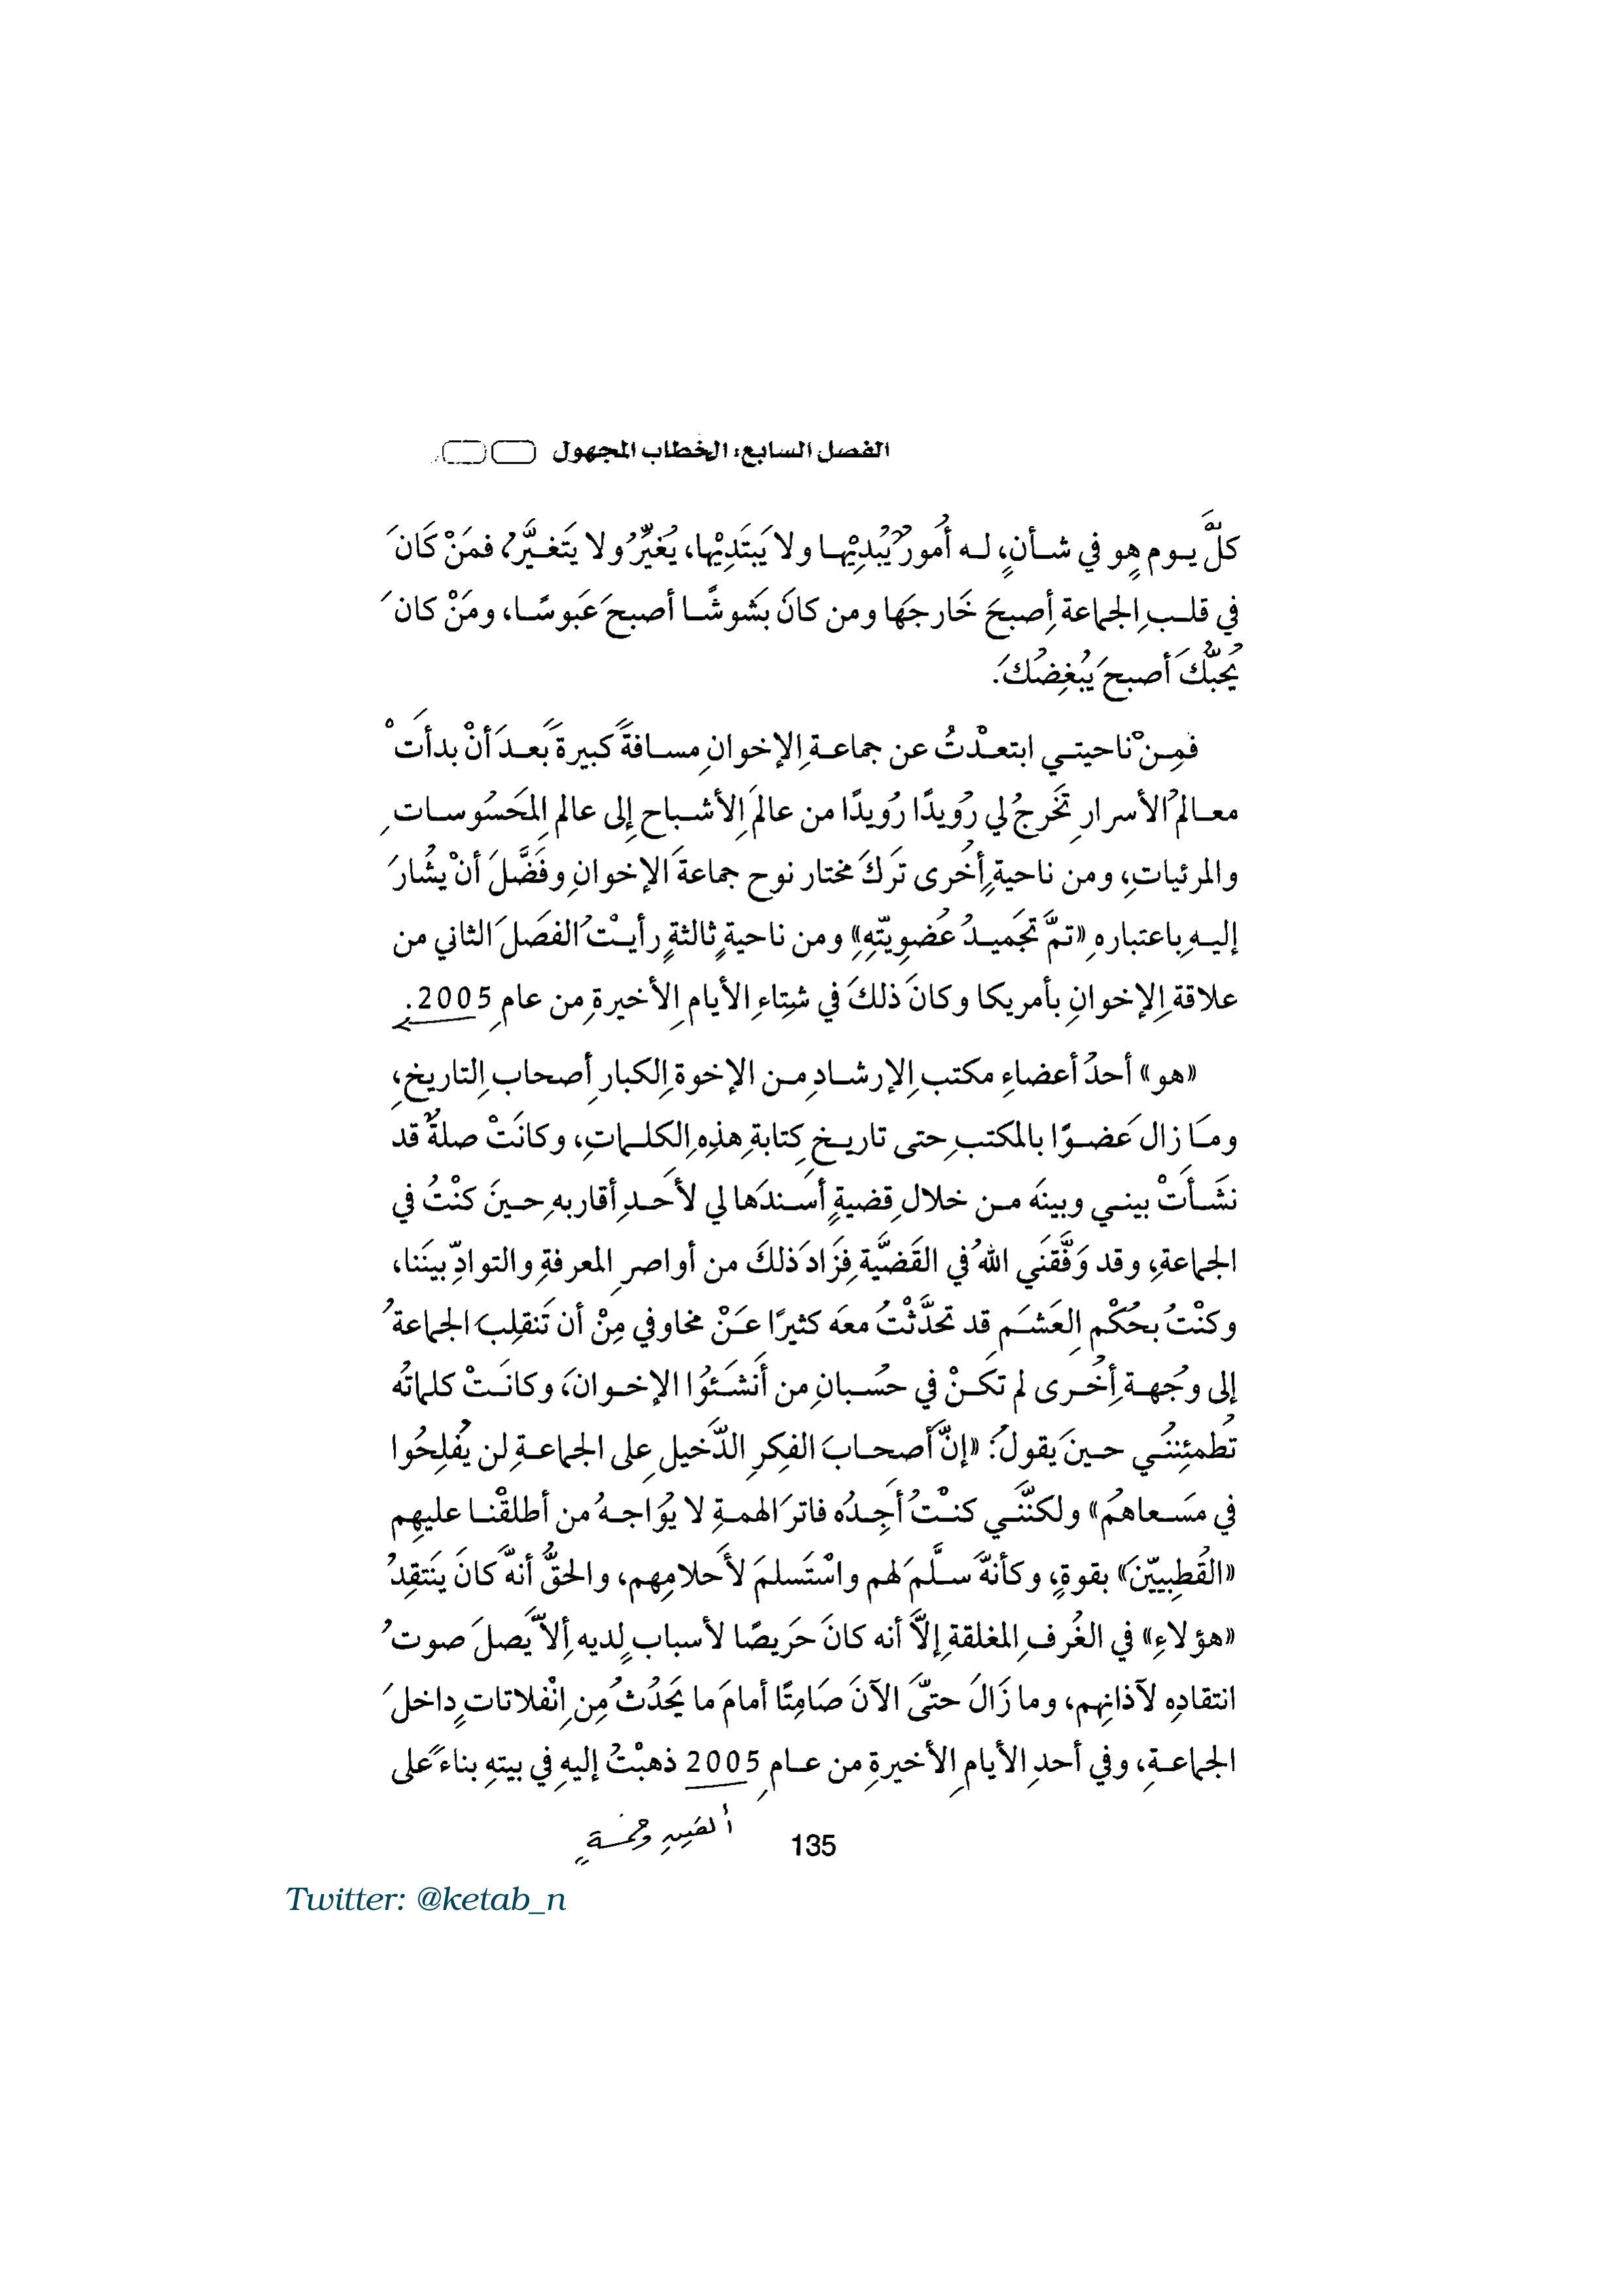 الفصل السابع: الخطاب المجهول
كلَّ يوم هو في شأنٍ، له أُمورٌ يُبدِيْها ولا يَبتَدِيْها، يُغيِّرُ ولا يَتَغيَّرُ، فمَنْ كَانَ
في قلبِ الجماعة أصبحَ خَارجَها ومن كانَ بَشوشًا أصبحَ عَبوسًا، ومَنْ كانَ
يُحبُّكَ أصبحَ يُبغِضُكَ.
فمِنْ ناحيتي ابتعدْتُ عن جماعةِ الإخوانِ مسافةً كبيرةً بَعدَ أنْ بدأَتْ
معالمُ الأسرارِ تَخَرجُ لي رُوَيدًا رُوَيدًا من عالمَ الأشباحِ إلى عالمِ المَحَسُوساتِ
والمرئياتِ، ومن ناحيةٍ أُخَرى تَركَ مختار نوح جماعةَ الإخوانِ وفَضَّلَ أنْ يشُارَ
إليهِ باعتبارهِ «تمَّ تجَميدُ عُضوِيتّهِ» ومن ناحيةٍ ثالثةٍ رأيتْ الفصَلَ الثاني من
علاقةِ الإخوانِ بأمريكا وكانَ ذلكَ في شتِاءِ الأيامِ الأخيرةِ من عامِ 2005.
«هو» أحدُ أعضاءِ مكتبِ الإرشادِ من الإخوةِ الكبارِ أصحابِ التاريخِ،
ومَا زال عَضوًا بالمكتبِ حتى تاريخِ كتابةِ هذِه الكلماتِ، وكانَتْ صلةٌ قد
نشَأَتْ بيني وبينَه من خلالِ قضيةٍ أسَندَها لي لأحَدِ أقاربهِ حينَ كنْتُ في
الجماعةِ، وقد وَفَّقنَي اللهُ في القَضيَّةِ فزَادَ ذلكَ من أواصرِ المعرفةِ والتوادِّ بينَنا،
وكنْتُ بحُكْمِ العَشَمِ قد تحدَّثْتُ معَه كثيرًا عَنْ مخاوفي مِنْ أن تَنقلِبَ الجماعةُ
إلى وجُهةٍ أُخَرى لم تكَنْ في حسُبانِ من أَنشَئوُا الإخوانَ، وكانَتْ كلماتُه
تُطمئِننُي حينَ يقولُ: «إنَّ أصحابَ الفكِرِ الدَّخيلِ على الجماعةِ لن يُفلِحُوا
في مَسَعاهُم» ولكنَّني كنْتُ أجِدُه فاترَ الهمةِ لا يُوَاجهُ من أطلقْنا عليهِم
«القُطبِييّنَ» بقوةٍ، وكأنهَّ سلَّمَ لهم واسْتَسلمَ لأَحلامِهم، والحقُّ أنهَّ كانَ ينَتقِدُ
«هؤلاءِ» في الغُرفِ المغلقةِ إلاَّ أنه كانَ حَريصًا لأسبابٍ لديهِ ألاَّ يَصلَ صوتُ
انتقادِه لآذانِهم، وما زَالَ حتىَّ الآنَ صَامِتًا أمامَ ما يَحَدُثُ مِن انْفلاتاتٍ داخلَ
الجماعةِ، وفي أحدِ الأيامِ الأخيرةِ من عامِ 2005 ذهبْتُ إليهِ في بيتهِ بناءً على
ألفينِ وخمسةٍ
135
Twitter: @ketab_n